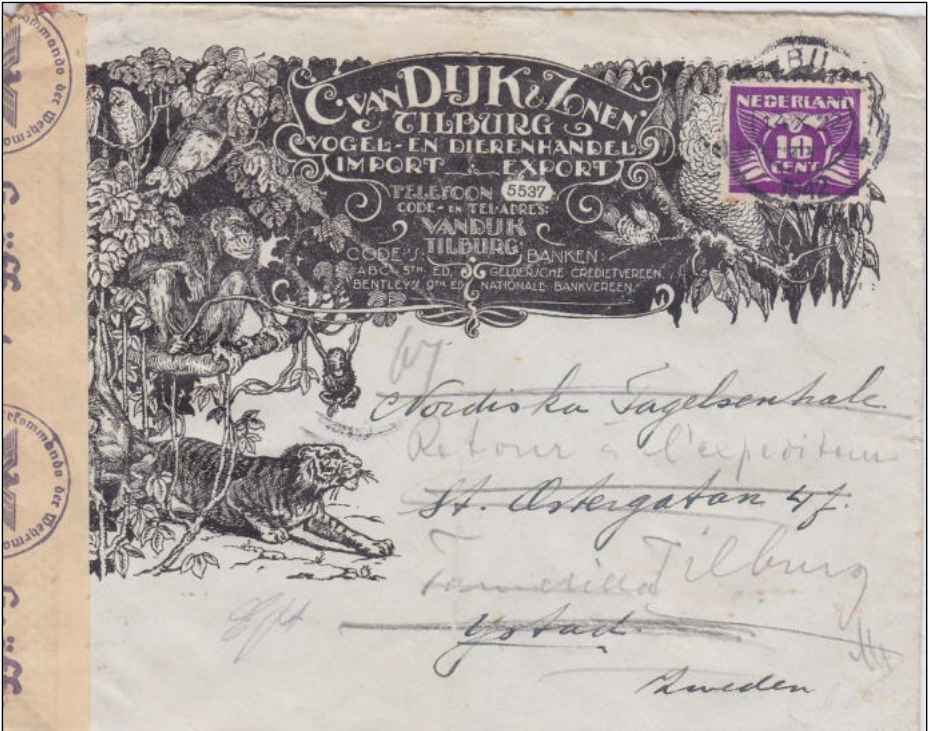 C. VAN DIJK & ZONEN.
TILBURG
VOGEL- EN DIERENHANDEL
IMPORT EXPORT
TELEFOON 5537
CODE- EN TEL-ADRES:
VANDIJK
TILBURG
CODE'S: BANKEN:
A.B.C. 5TH. ED. GELDERSCHE CREDIETVEREEN.
BENTLEY'S 9TH ED. NATIONALE BANKVEREEN.
NEDERLAND
CENT
Nordiska Fagelsenhale
Retour à l'expediteur
St. Ostergatan 47.
Tilburg
Ystad.
Zweden